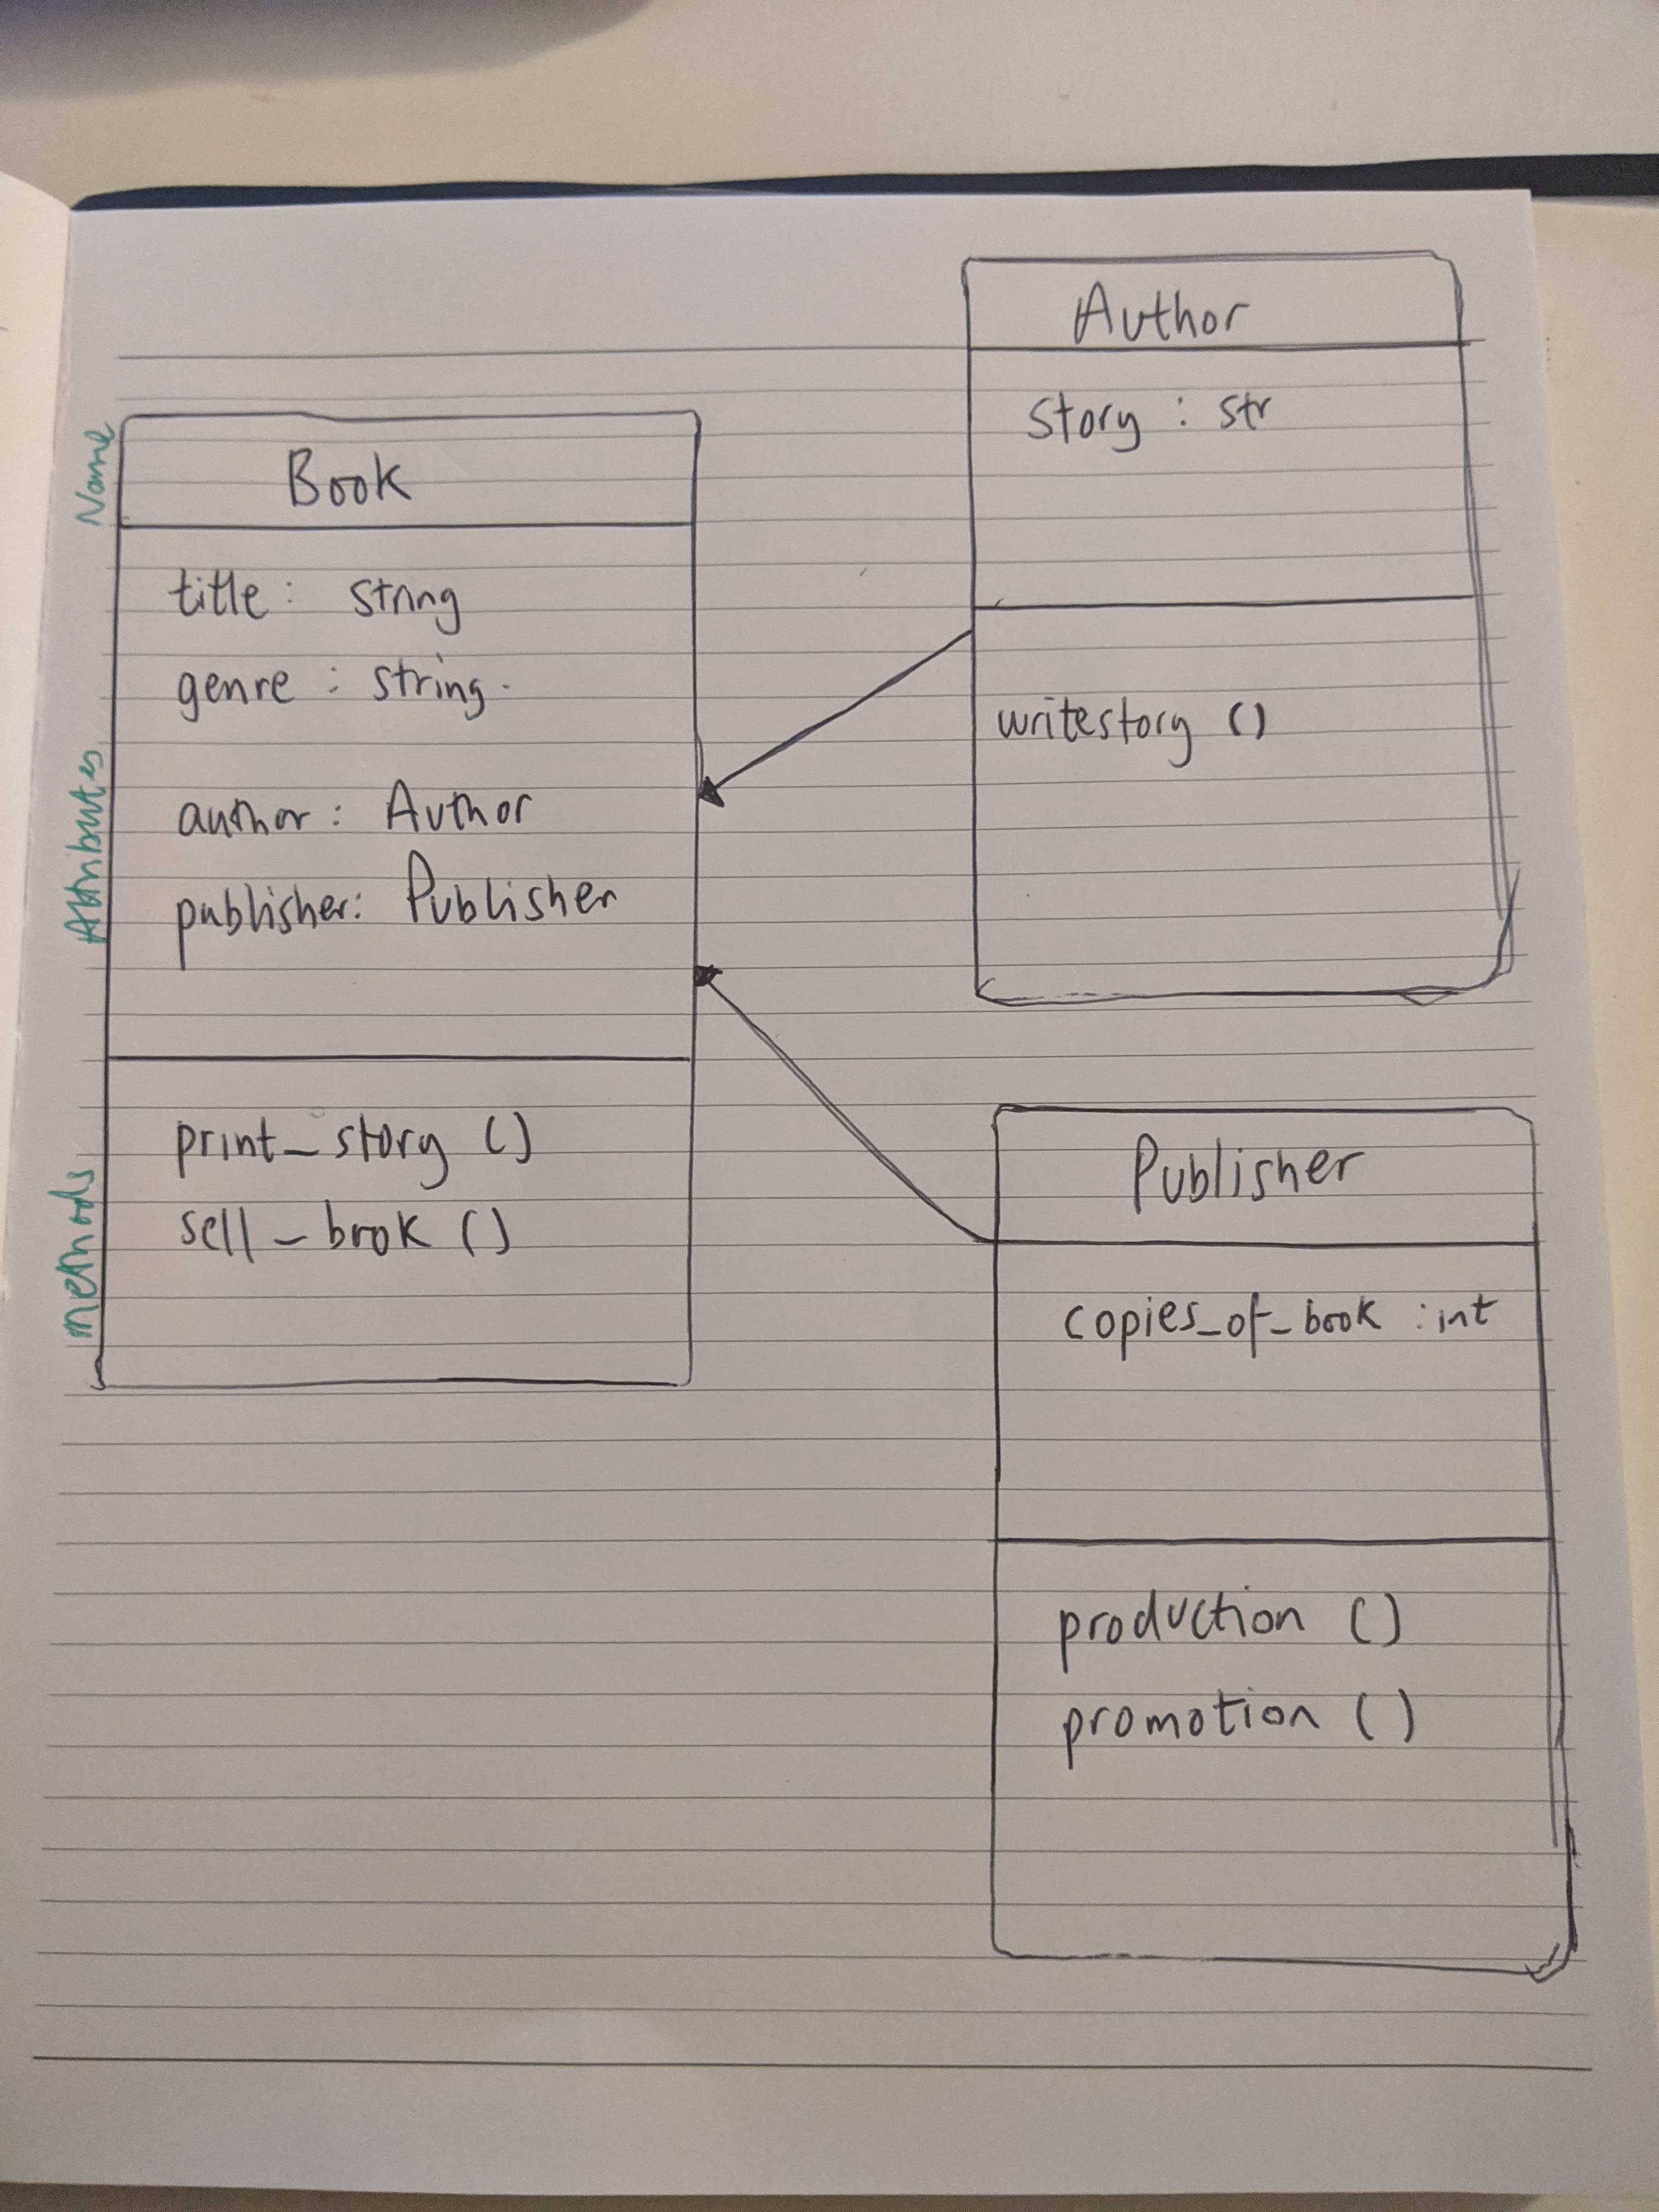 Name
Attributes
methods
Book
title: string
genre : string.
author: Author
publisher: Publisher
print_story ()
sell_book ()
Author
story : str
writestory ()
Publisher
copies_of_book : int
production ()
promotion ()